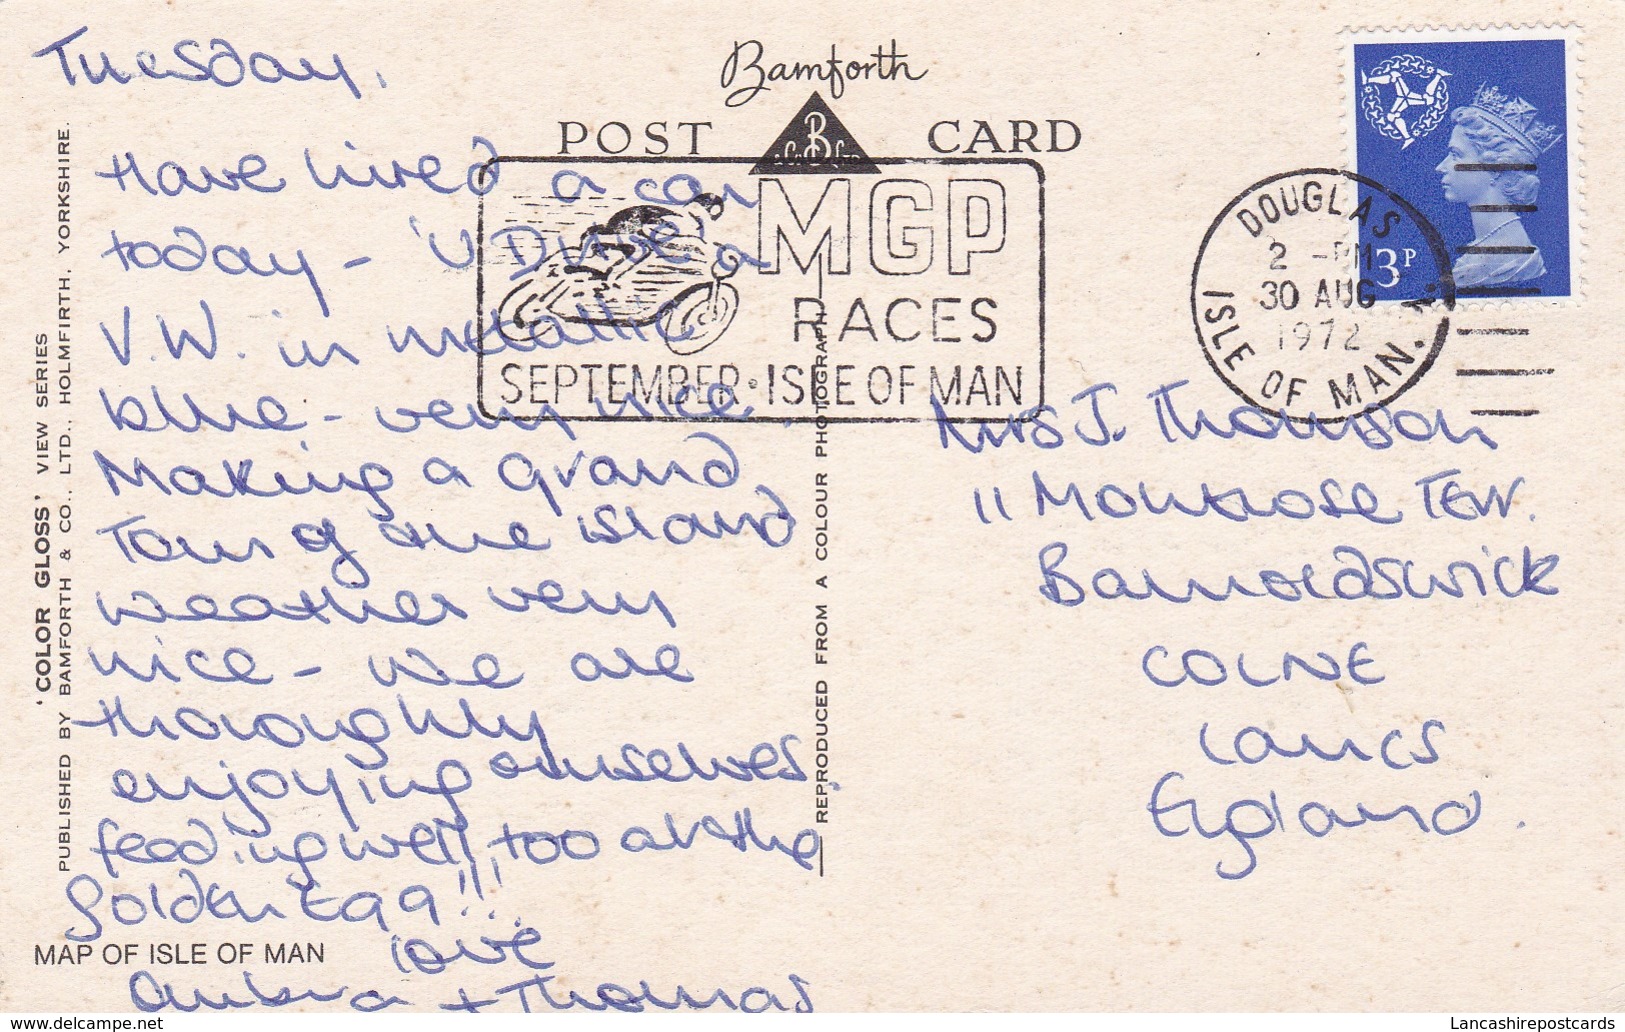 Tuesday.
Have hired a car
today - 'U Drive' a
V.W. in metallic
blue - very nice.
Making a grand
Tour of the island
weather very
nice - we are
thoroughly
enjoying ourselves.
feeding well, too at the
Golden Egg!!!...
love
+ Thomas
'COLOR GLOSS' VIEW SERIES
PUBLISHED BY BAMFORTH & CO., LTD., HOLMFIRTH, YORKSHIRE.
MAP OF ISLE OF MAN
Bamforth
POST CARD
B
& Co. Ltd.
MGP
RACES
SEPTEMBER · ISLE OF MAN
REPRODUCED FROM A COLOUR PHOTOGRAPH
DOUGLAS
2 -PM
30 AUG
1972
ISLE OF MAN.
3P
Mrs J. Thomson
11 Montrose Terr.
Barnoldswick
COLNE
Lancs
England.
delcampe.net
Lancashirepostcards